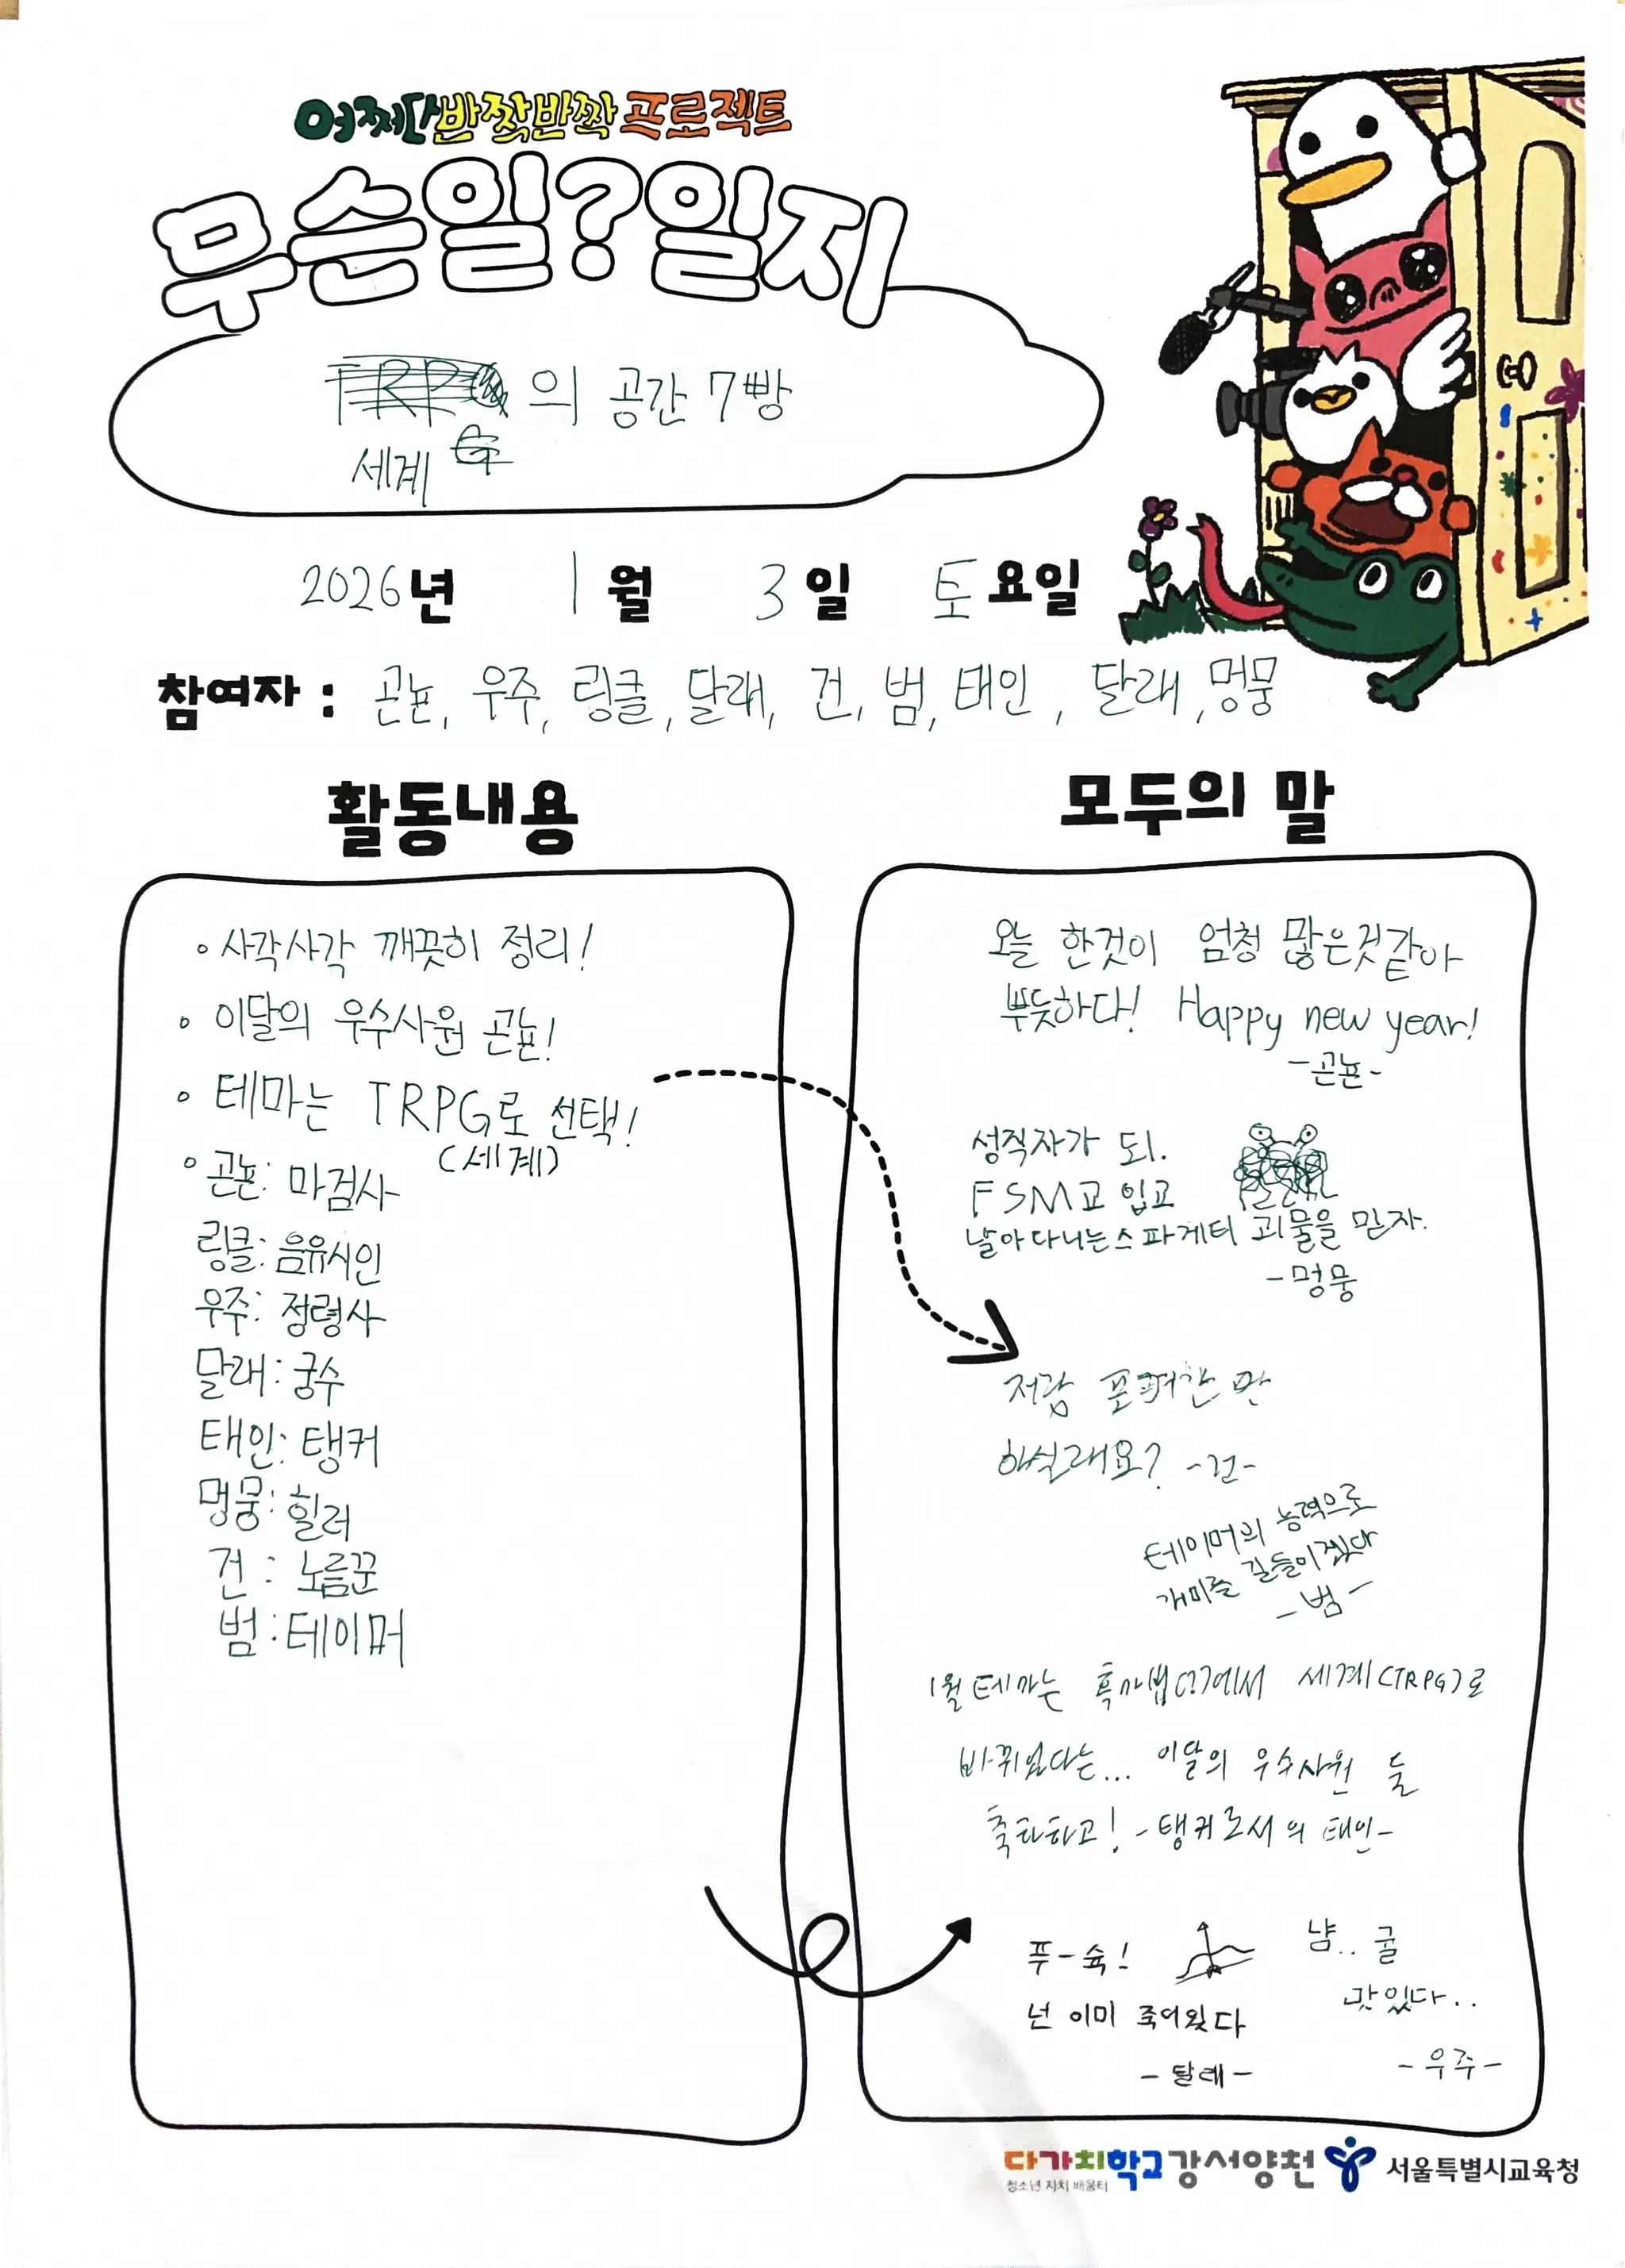 어쩌다반짝반짝프로젝트
무슨일?일지
의 공간 7빵
세계
2026년 1월 3일 토요일
참여자 : 곤뇬, 우주, 링클, 달래, 건, 범, 태인, 달래, 멍뭉
활동내용
모두의 말
◦ 사각사각 깨끗히 정리!
◦ 이달의 우수사원 곤뇬!
◦ 테마는 TRPG로 선택!
(세계)
◦ 곤뇬: 마검사
링클: 음유시인
우주: 정령사
달래: 궁수
태인: 탱커
멍뭉: 힐러
건 : 노름꾼
범 : 테이머
오늘 한것이 엄청 많은것같아
뿌듯하다! Happy new year!
-곤뇬-
성직자가 되.
FSM교 입교
날아다니는스파게티 괴물을 믿자.
-멍뭉
저랑 한 판
하실래요? -건-
테이머의 능력으로
개미를 길들이겠다
-범-
1월 테마는 흑마법(?)에서 세계(TRPG)로
바뀌었다는... 이달의 우수사원 들
축하하고! -탱커로서의 태인-
푸-슉!
넌 이미 죽어있다
-달래-
냠.. 굴
맛있다..
-우주-
다가치학교강서양천
청소년 자치 배움터
서울특별시교육청